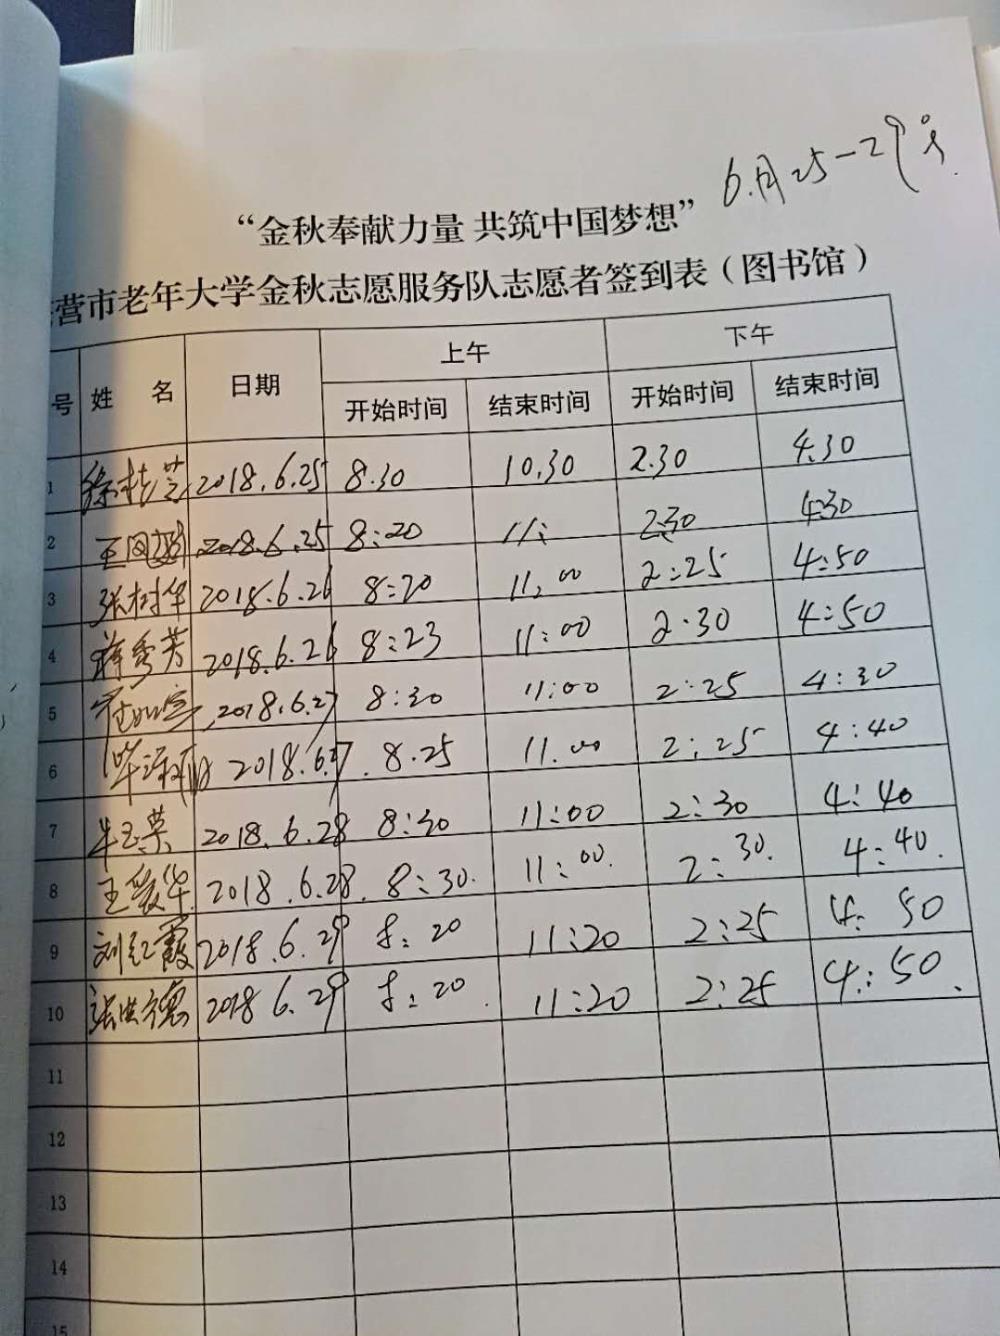 6.月25-29号
“金秋奉献力量 共筑中国梦想”
营市老年大学金秋志愿服务队志愿者签到表（图书馆）
号 姓 名 日期 上午 下午
开始时间 结束时间 开始时间 结束时间
1 徐桂芝 2018.6.25 8.30 10.30 2.30 4.30
2 2018.6.25 8:20 11: 2:30 4:30
3 张树华 2018.6.26 8:20 11:00 2:25 4:50
4 蒋秀芳 2018.6.26 8:23 11:00 2.30 4:50
5 2018.6.27 8:30 11:00 2:25 4:30
6 2018.6.27. 8.25 11.00 2:25 4:40
7 牛玉荣 2018.6.28 8:30 11:00 2:30 4:40
8 王爱华 2018.6.28. 8:30. 11:00. 2:30. 4:40.
9 刘红霞 2018.6.29 8:20 11:20 2:25 4:50
10 张洪德 2018 6.29 8:20. 11:20 2:25 4:50.
11
12
13
14
15